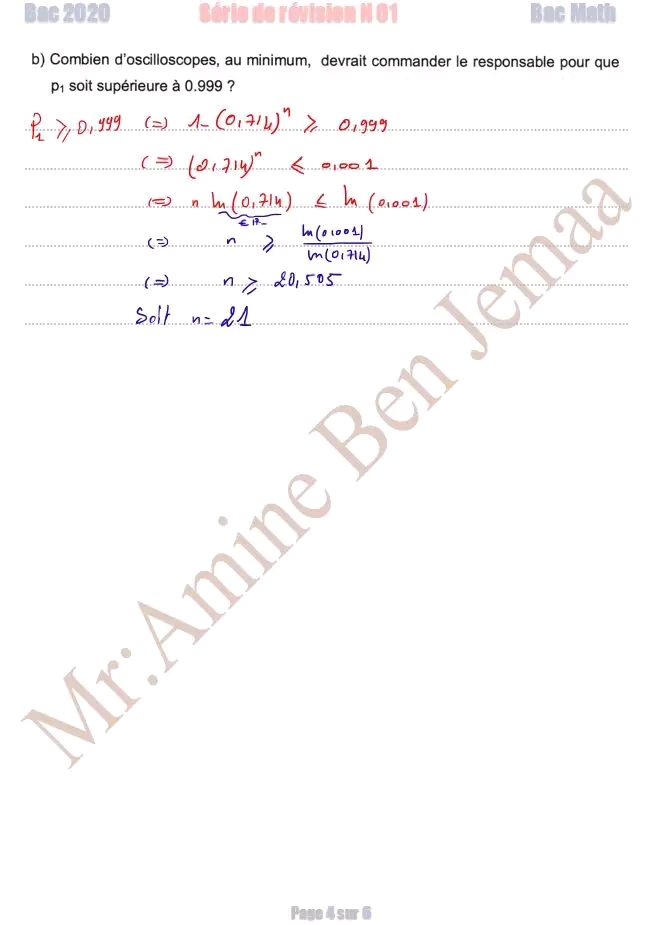 Bac 2020 Série de révision N 01 Bac Math
b) Combien d'oscilloscopes, au minimum, devrait commander le responsable pour que
p₁ soit supérieure à 0.999 ?
P₁ ⩾ 0,999 (=) 1-(0,714)ⁿ ⩾ 0,999
(=) (0,714)ⁿ ⩽ 0,001
(=) n ln(0,714) ⩽ ln(0,001)
∈ IR₋
(=) n ⩾ ln(0,001)/ln(0,714)
(=) n ⩾ 20,505
Soit n = 21
Mr:Amine Ben Jemaa
Page 4 sur 6